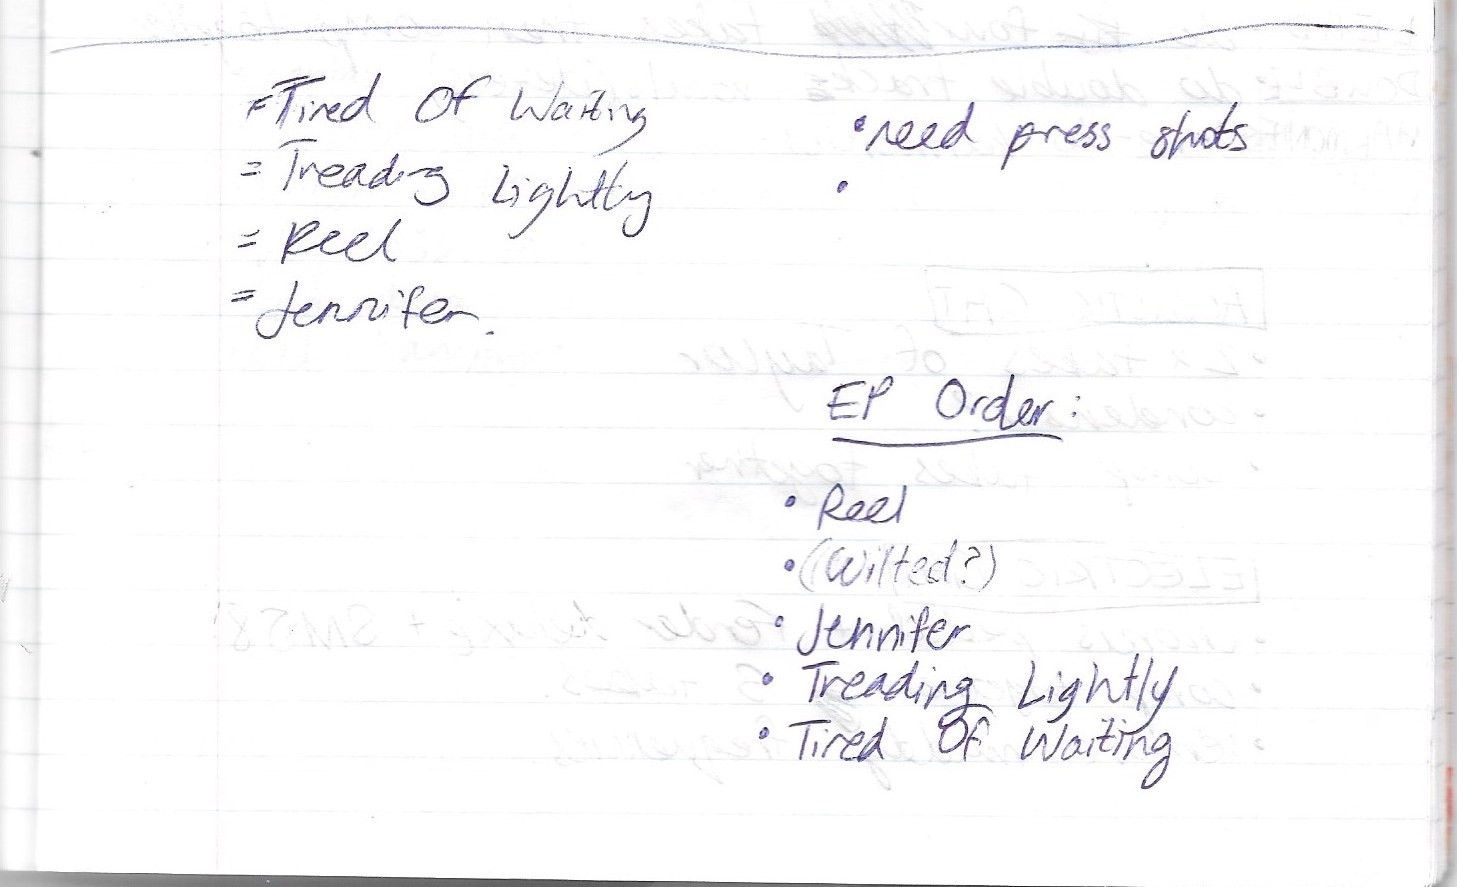 = Tired Of Waiting
= Treading Lightly
= Reel
= Jennifer.
• need press shots
•
EP Order:
• Reel
• (Wilted?)
• Jennifer
• Treading Lightly
• Tired Of Waiting